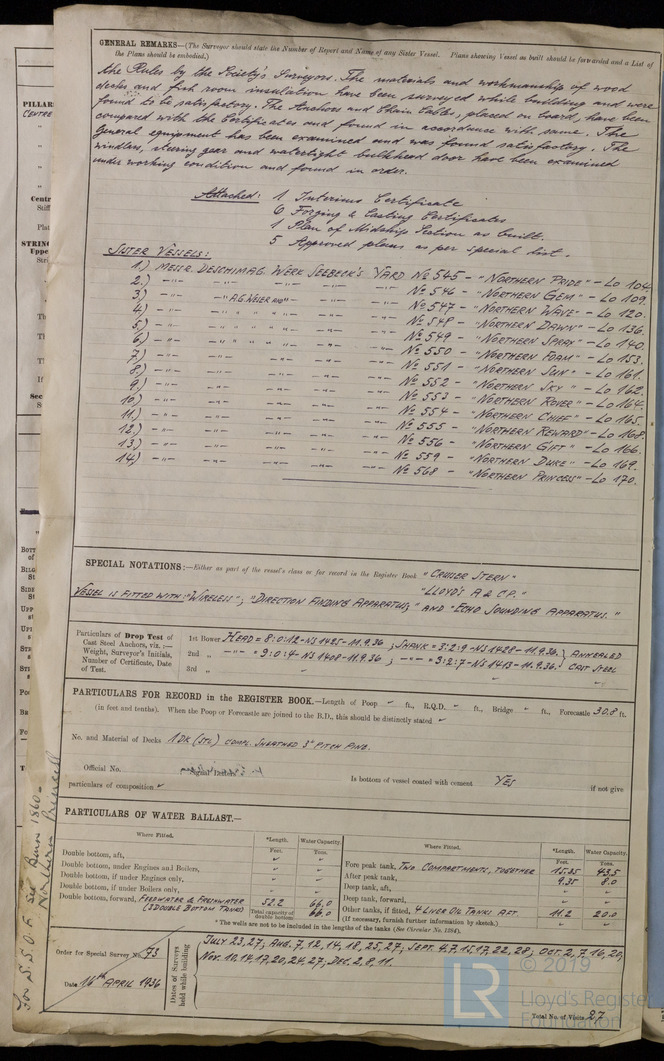 GENERAL REMARKS—(The Surveyor should state the Number of Report and Name of any Sister Vessel. Plans showing Vessel as built should be forwarded and a List of
the Plans should be embodied.)
the Rules by the Society's Surveyors. The materials and workmanship of wood
decks and fish room insulation have been surveyed while building and were
found to be satisfactory. The Anchors and Chain Cables, placed on board, have been
compared with the Certificates and found in accordance with same. The
General equipment has been examined and was found satisfactory. The
windlass, steering gear and watertight bulkhead door have been examined
under working condition and found in order.
Attached: 1 Interim Certificate
6 Forging & Casting Certificates
1 Plan of Midship Section as built.
5 Approved plans as per special list.
SISTER VESSELS:
1.) MESSR. DESCHIMAG WERK SEEBECK'S YARD No 545 - "NORTHERN PRIDE" - Lo 104.
2.) -"- -"- -"- -"- -"- No 546 - "NORTHERN GEM" - Lo 109.
3.) -"- "A.G. WESER AND" -"- -"- No 547 - "NORTHERN WAVE" - Lo 120.
4.) -"- " " " " -"- -"- No 548 - "NORTHERN DAWN" - Lo 136.
5.) -"- " " " " -"- -"- No 549 - "NORTHERN SPRAY" - Lo 140.
6.) -"- -"- -"- -"- -"- No 550 - "NORTHERN FOAM" - Lo 153.
7.) -"- -"- -"- -"- -"- No 551 - "NORTHERN SUN" - Lo 161.
8.) -"- -"- -"- -"- -"- No 552 - "NORTHERN SKY" - Lo 162.
9.) -"- -"- -"- -"- -"- No 553 - "NORTHERN ROVER" - Lo 164.
10.) -"- -"- -"- -"- -"- No 554 - "NORTHERN CHIEF" - Lo 165.
11.) -"- -"- -"- -"- -"- No 555 - "NORTHERN REWARD" - Lo 168.
12.) -"- -"- -"- -"- -"- No 556 - "NORTHERN GIFT" - Lo 166.
13.) -"- -"- -"- -"- -"- No 559 - "NORTHERN DUKE" - Lo 169.
14.) -"- -"- -"- -"- -"- No 568 - "NORTHERN PRINCESS" - Lo 170.
SPECIAL NOTATIONS:—Either as part of the vessel's class or for record in the Register Book "CRUISER STERN"
"LLOYD'S A & C.P."
VESSEL IS FITTED WITH: "WIRELESS"; "DIRECTION FINDING APPARATUS;" AND "ECHO SOUNDING APPARATUS."
Particulars of Drop Test of
Cast Steel Anchors, viz. :—
Weight, Surveyor's Initials,
Number of Certificate, Date
of Test.
1st Bower HEAD = 8:0:12 - NS 1425 - 11.9.36 ; SHANK = 3:2:9 - NS 1428 - 11.9.36. } ANNEALED
2nd " -"- = 9:0:4 - NS 1408 - 11.9.36 ; -"- = 3:2:7 - NS 1413 - 11.9.36. } CAST STEEL
3rd "
PARTICULARS FOR RECORD in the REGISTER BOOK.—Length of Poop ft., R.Q.D. ft., Bridge ft., Forecastle 30.8 ft.
(in feet and tenths). When the Poop or Forecastle are joined to the B.D., this should be distinctly stated
No. and Material of Decks 1 DK (STL) COMPL. SHEATHED 3" PITCH PINE.
Official No.
Signal Letters
Is bottom of vessel coated with cement YES if not give
particulars of composition
PARTICULARS OF WATER BALLAST.—
Where Fitted. *Length. Water Capacity.
Feet. Tons.
Double bottom, aft,
Double bottom, under Engines and Boilers,
Double bottom, if under Engines only,
Double bottom, if under Boilers only,
Double bottom, forward, FEEDWATER & FRESHWATER 52.2 66,0
(3 DOUBLE BOTTOM TANKS) Total capacity of double bottom 66,0
Where Fitted. *Length. Water Capacity.
Feet. Tons.
Fore peak tank, TWO COMPARTMENTS, TOGETHER 15.35 43.5
After peak tank, 9.35 8.0
Deep tank, aft,
Deep tank, forward,
Other tanks, if fitted, 4 LIVER OIL TANKS AFT 11.2 20.0
(If necessary, furnish further information by sketch.)
* The wells are not to be included in the lengths of the tanks (See Circular No. 1284).
Order for Special Survey No. 73
Date 16th APRIL 1936
Dates of Surveys
held while building
JULY 23, 27; AUG. 7, 12, 14, 18, 25, 27; SEPT. 4, 7, 15, 17, 22, 28; OCT. 2, 7, 16, 20;
NOV. 10, 14, 17, 20, 24, 27; DEC. 2, 8, 11.
Total No. of Visits 27
Northern Princess
© 2019
LR
Lloyd's Register
Foundation
PILLARS
CENTRE